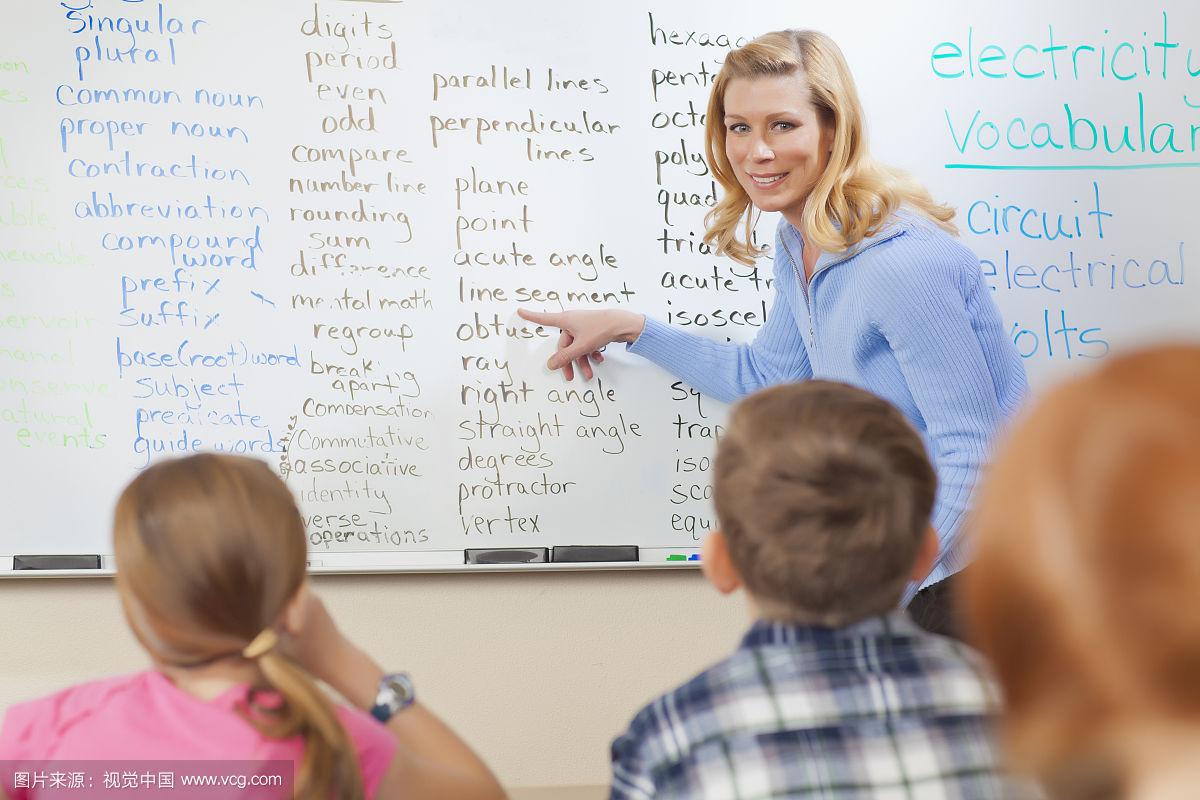 singular
plural
common noun
proper noun
contraction
abbreviation
compound
word
prefix
suffix
base(root)word
subject
predicate
guide words
events
digits
period
even
odd
compare
number line
rounding
sum
difference
mental math
regroup
breaking
apart
compensation
Commutative
associative
identity
operations
parallel lines
perpendicular
lines
plane
point
acute angle
line segment
obtuse
ray
right angle
straight angle
degrees
protractor
vertex
hexago
pent
octo
poly
quad
tria
acute tr
isoscel
sq
trap
iso
sca
equi
electricity
vocabular
circuit
electrical
volts
图片来源：视觉中国 www.vcg.com